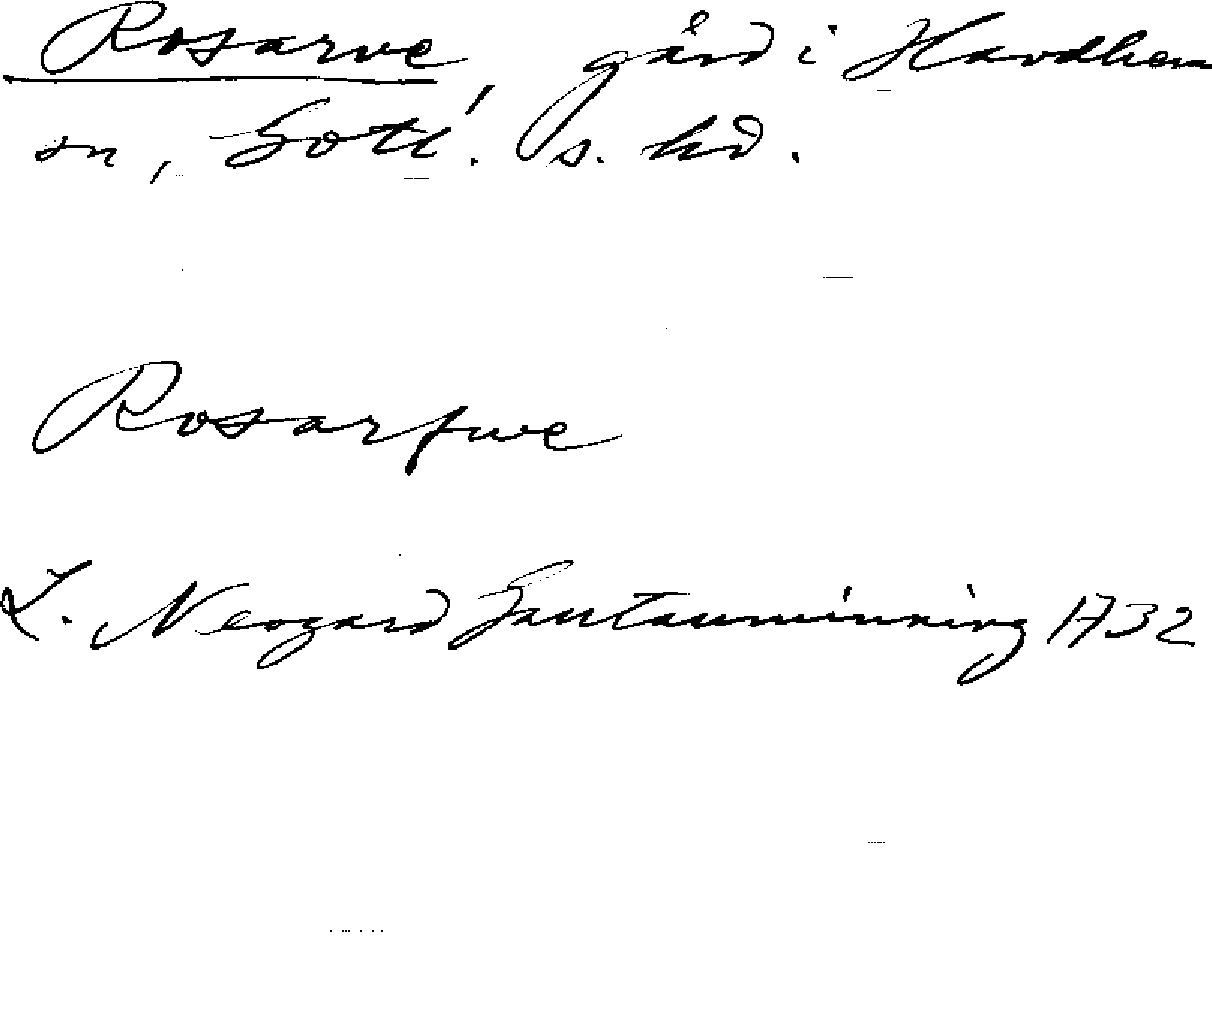 Rosarve, gård i Havdhem
sn, Gotl. s. hd.
Rosarfwe
L. Neogard Gautauminning 1732